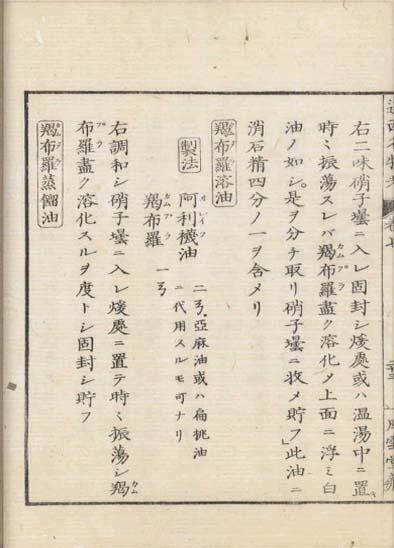 右二味硝子壜ニ入レ固封シ煖處或ハ温湯中ニ置キ
時〻振蕩スレバ羯布羅盡ク溶化メ上面ニ浮ミ白
油ノ如シ。是ヲ分チ取リ硝子壜ニ收メ貯フ」此油ニ
消石精四分ノ一ヲ含メリ
羯布羅溶油
製法 阿利襪油 二ヲ、亞麻油或ハ扁桃油
ニ代用スルモ可ナリ
羯布羅 一ヲ
右調和シ硝子壜ニ入レ煖處ニ置テ時〻振蕩シ羯
布羅盡ク溶化スルヲ度トシ固封シ貯フ
羯布羅蒸餾油